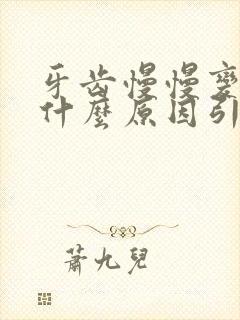 牙齒慢慢變
什麼原因引
蕭九兒